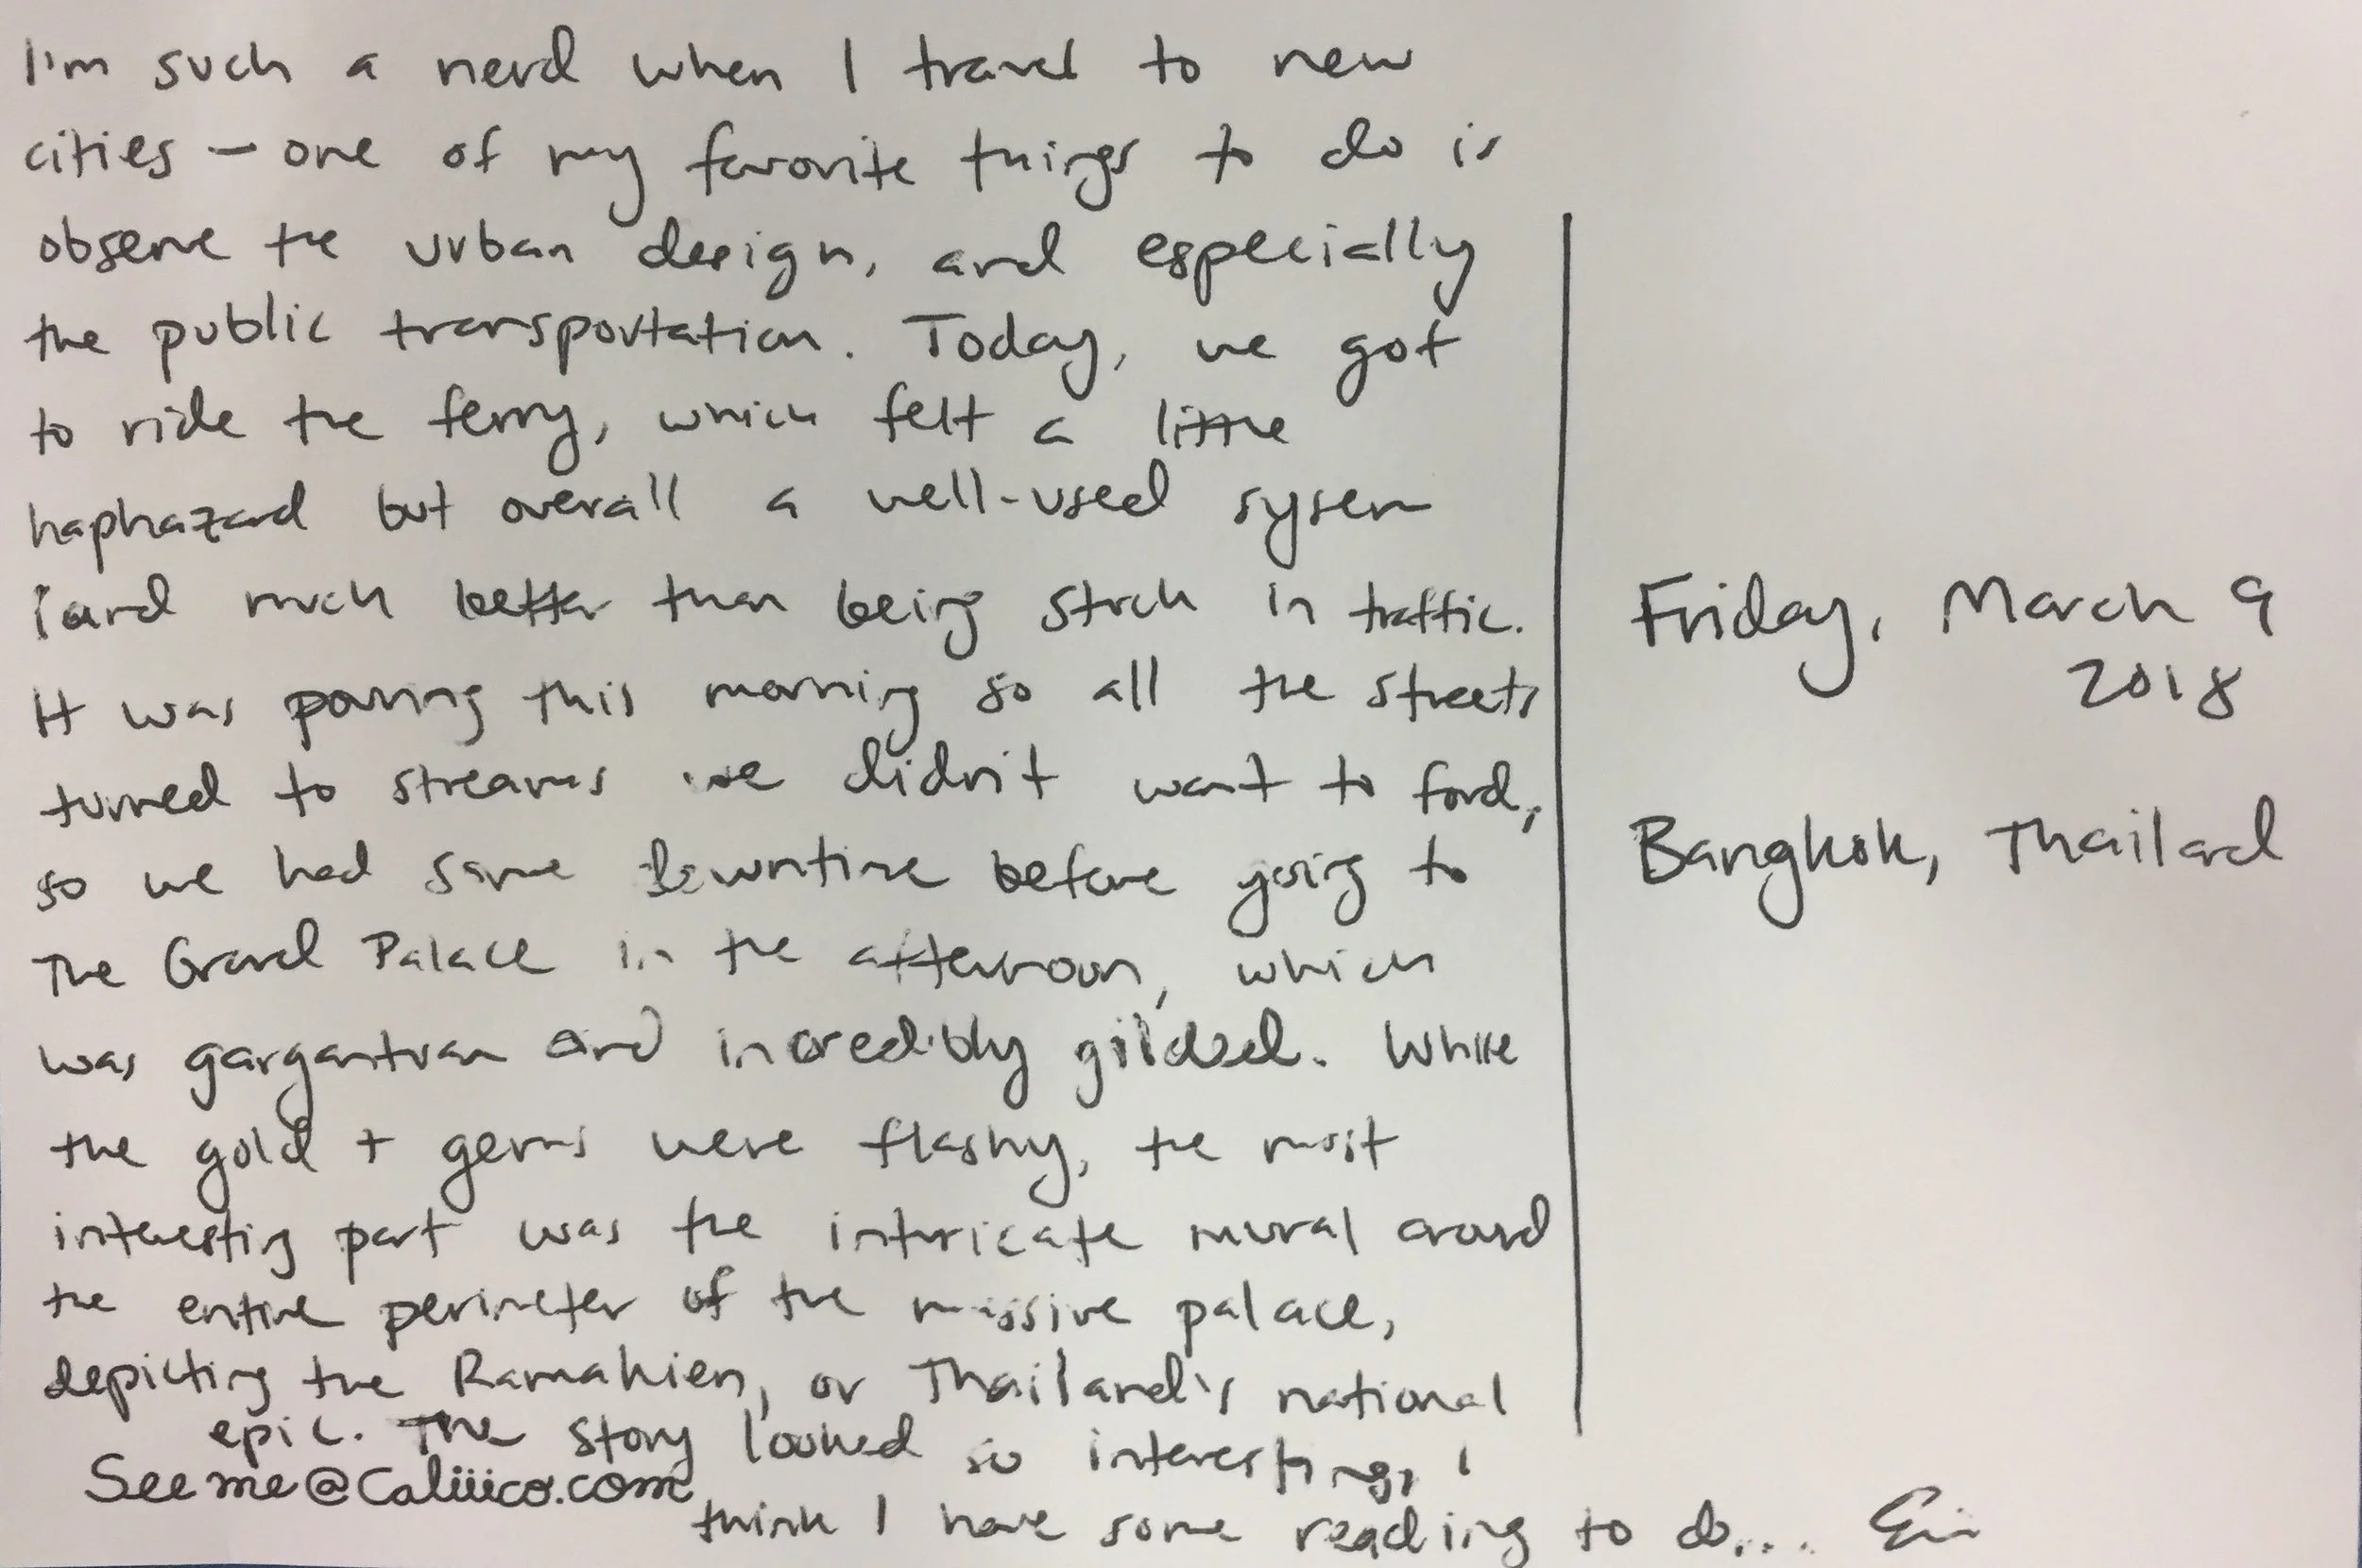 I'm such a nerd when I travel to new
cities – one of my favorite things to do is
observe the urban design, and especially
the public transportation. Today, we got
to ride the ferry, which felt a little
haphazard but overall a well-used sysem
(and much better than being stuck in traffic.
It was pouring this morning so all the streets
turned to streams we didn't want to ford,
so we had some downtime before going to
The Grand Palace in the afternoon, which
was gargantuan and incredibly gilded. While
the gold + gems were flashy, the most
interesting part was the intricate mural around
the entire perimeter of the massive palace,
depicting the Ramakien, or Thailand's national
epic. The story looked so interesting, I
think I have some reading to do...
See me@Caliiico.com
Friday, March 9
2018
Bangkok, Thailand